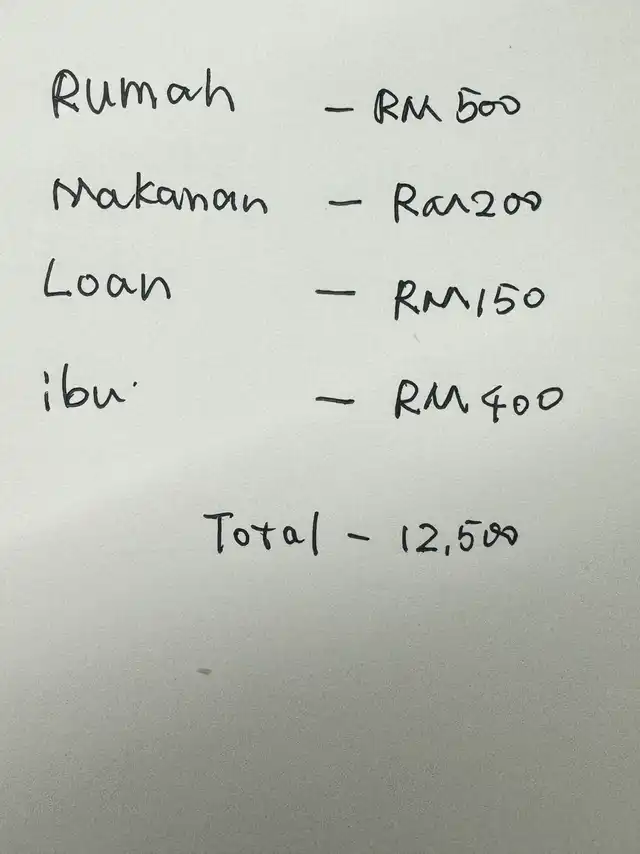 Rumah - RM 500
Makanan - RM200
Loan - RM150
ibu - RM 400
Total - 12,500